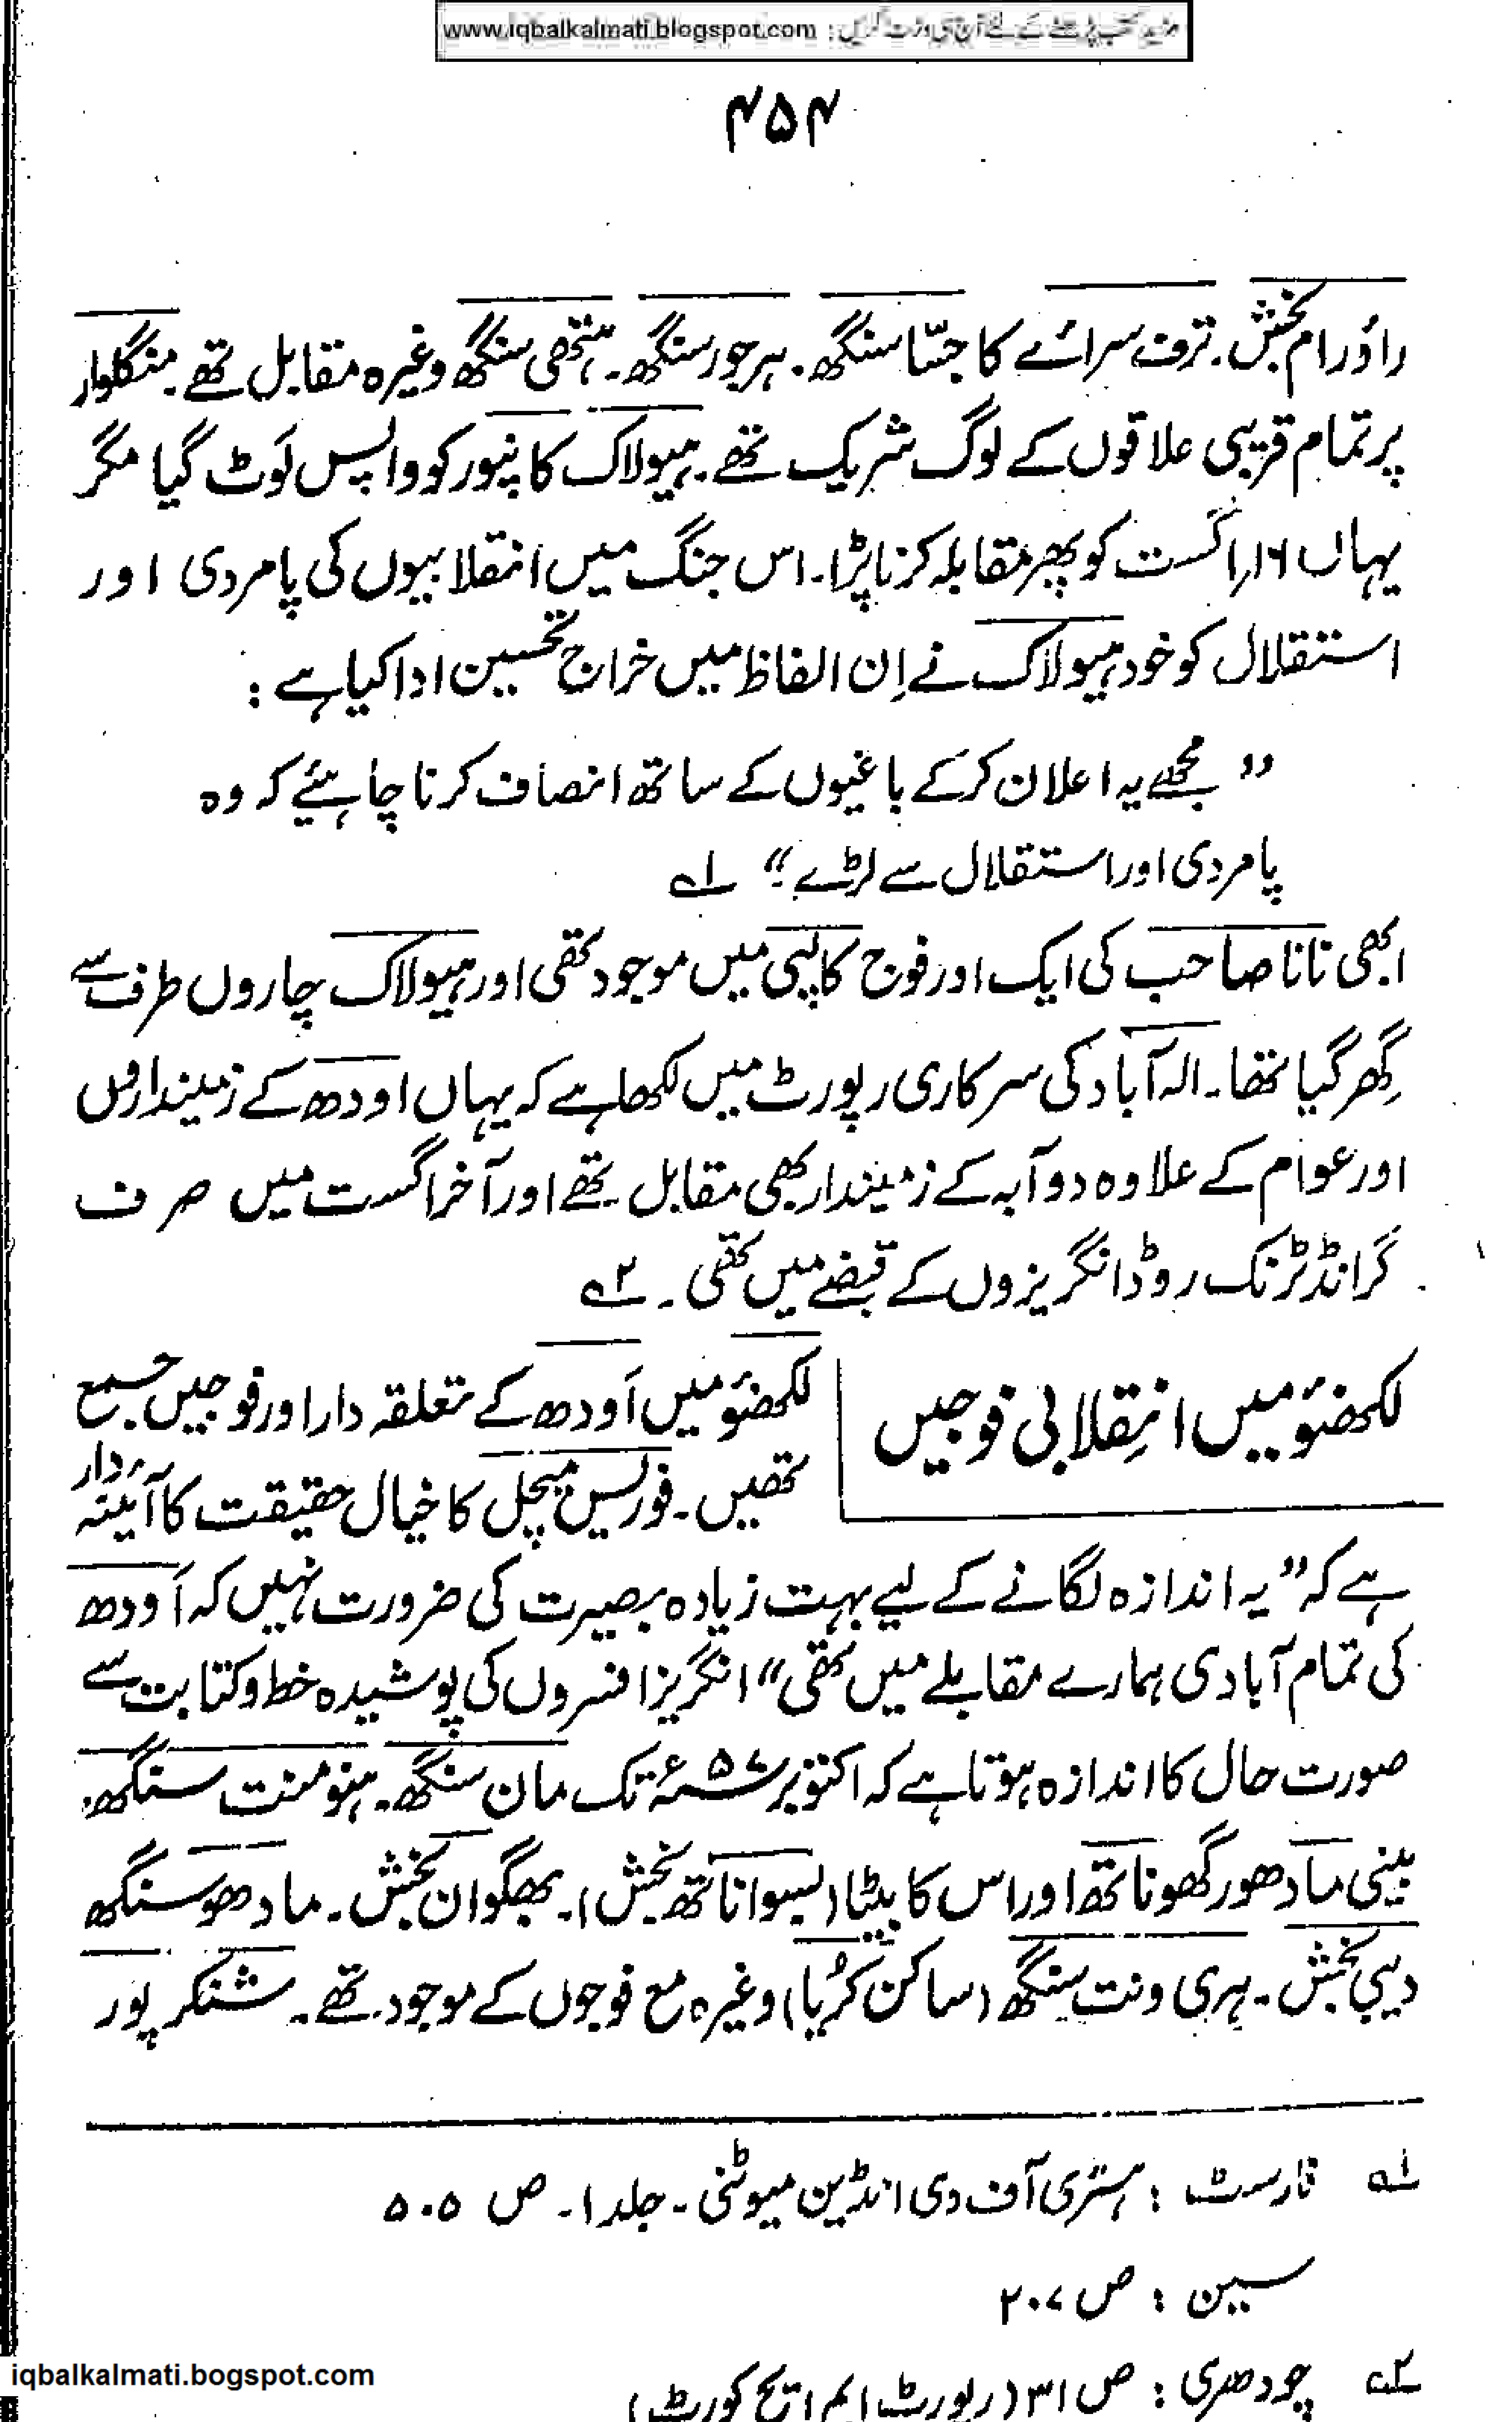 مزید کتب پڑھنے کے لئے آج ہی وزٹ کریں : www.iqbalkalmati.blogspot.com
۴۵۴
راؤ رام بخش۔ ترف سرائے کا جسّا سنگھ۔ ہرجور سنگھ۔ ہتنحی سنگھ وغیرہ مقابل تھے۔ منگلوار
پر تمام قریبی علاقوں کے لوگ شریک تھے۔ ہیولاک کانپور کو واپس لَوٹ گیا مگر
یہاں ۱۶؍اگست کو پھر مقابلہ کرنا پڑا۔ اس جنگ میں انقلابیوں کی پامردی اور
استقلال کو خود ہیولاک نے اِن الفاظ میں خراجِ تحسین ادا کیا ہے :
” مجھے یہ اعلان کر کے باغیوں کے ساتھ انصاف کرنا چاہئیے کہ وہ
پامردی اور استقلال سے لڑے۔“ ۱؎
ابھی نانا صاحب کی ایک اور فوج کالپی میں موجود تھی اور ہیولاک چاروں طرف سے
گِھر گیا تھا۔ الہ آباد کی سرکاری رپورٹ میں لکھا ہے کہ یہاں اودھ کے زمینداروں
اور عوام کے علاوہ دوآبہ کے زمیندار بھی مقابل تھے اور آخر اگست میں صرف
گرانڈ ٹرنک روڈ انگریزوں کے قبضے میں تھی۔ ۲؎
لکھنؤ میں انقلابی فوجیں
لکھنؤ میں اَودھ کے تعلقہ دار اور فوجیں جمع
تھیں۔ فورلیس مچل کا خیال حقیقت کا آئینہ دار
ہے کہ ” یہ اندازہ لگانے کے لیے بہت زیادہ بصیرت کی ضرورت نہیں کہ اَودھ
کی تمام آبادی ہمارے مقابلے میں تھی“ انگریز افسروں کی پوشیدہ خط و کتابت سے
صورت حال کا اندازہ ہوتا ہے کہ اکتوبر ۵۷ء تک مان سنگھ۔ ہنومنت سنگھ،
بینی مادھو رگھوناتھ اور اس کا بیٹا (بسواناتھ بخش)۔ بھگوان بخش۔ مادھو سنگھ
دیبی بخش۔ ہری ونت سنگھ (ساکن کڑیا) وغیرہ مع فوجوں کے موجود تھے۔ شنکر پور
۱؎ فارسٹ : ہسٹری آف دی انڈین میوٹنی۔ جلد ۱۔ ص ۵۰۵
سین : ص ۲۰۷
۲؎ چودھری : ص ۳۱ (رپورٹ ایم ایچ کورٹ)
iqbalkalmati.bogspot.com